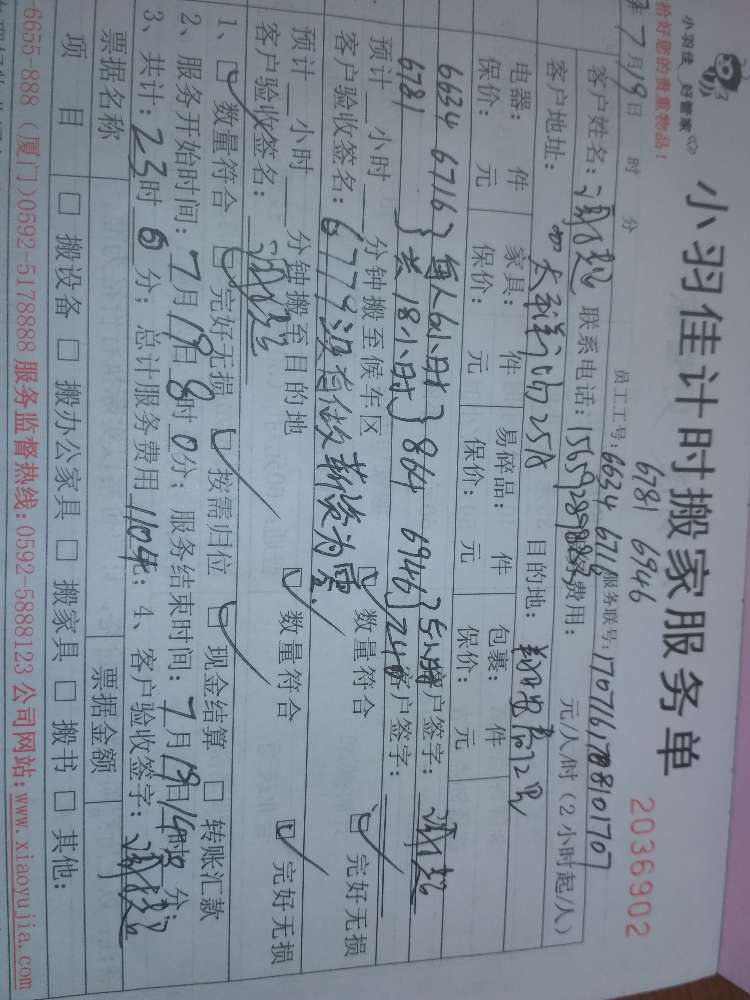 小羽佳 好管家
拾好您的贵重物品！
小羽佳计时搬家服务单
2036902
6781 6946
7月19日 时 分 员工工号：6634 6716 服务联号：
客户姓名： 联系电话： 费用： 元/人/时（2小时起/人）
客户地址： 目的地：
电器： 件 家具： 件 易碎品： 件 包裹： 件
保价： 元 保价： 元 保价： 元 保价： 元
6634 6716 每人6小时 客户签字：
6781 共18小时 864 6946 5小时 240
预计 小时 分钟搬至候车区 数量符合 完好无损
客户验收签名： 6779 没有做 薪资为零. 客户签字：
预计 小时 分钟搬至目的地 数量符合 完好无损
客户验收签名：
1、 数量符合 完好无损 按需归位 现金结算 转账汇款
2、服务开始时间：7月19日8时0分；服务结束时间：7月19日14时 分；
3、共计：23时0分；总计服务费用1104元；4、客户验收签字：
票据名称 票据金额
项 目 搬设备 搬办公家具 搬家具 搬书 其他：
6655-888 （厦门）0592-5178888 服务监督热线：0592-5888123 公司网站：www.xiaoyujia.com